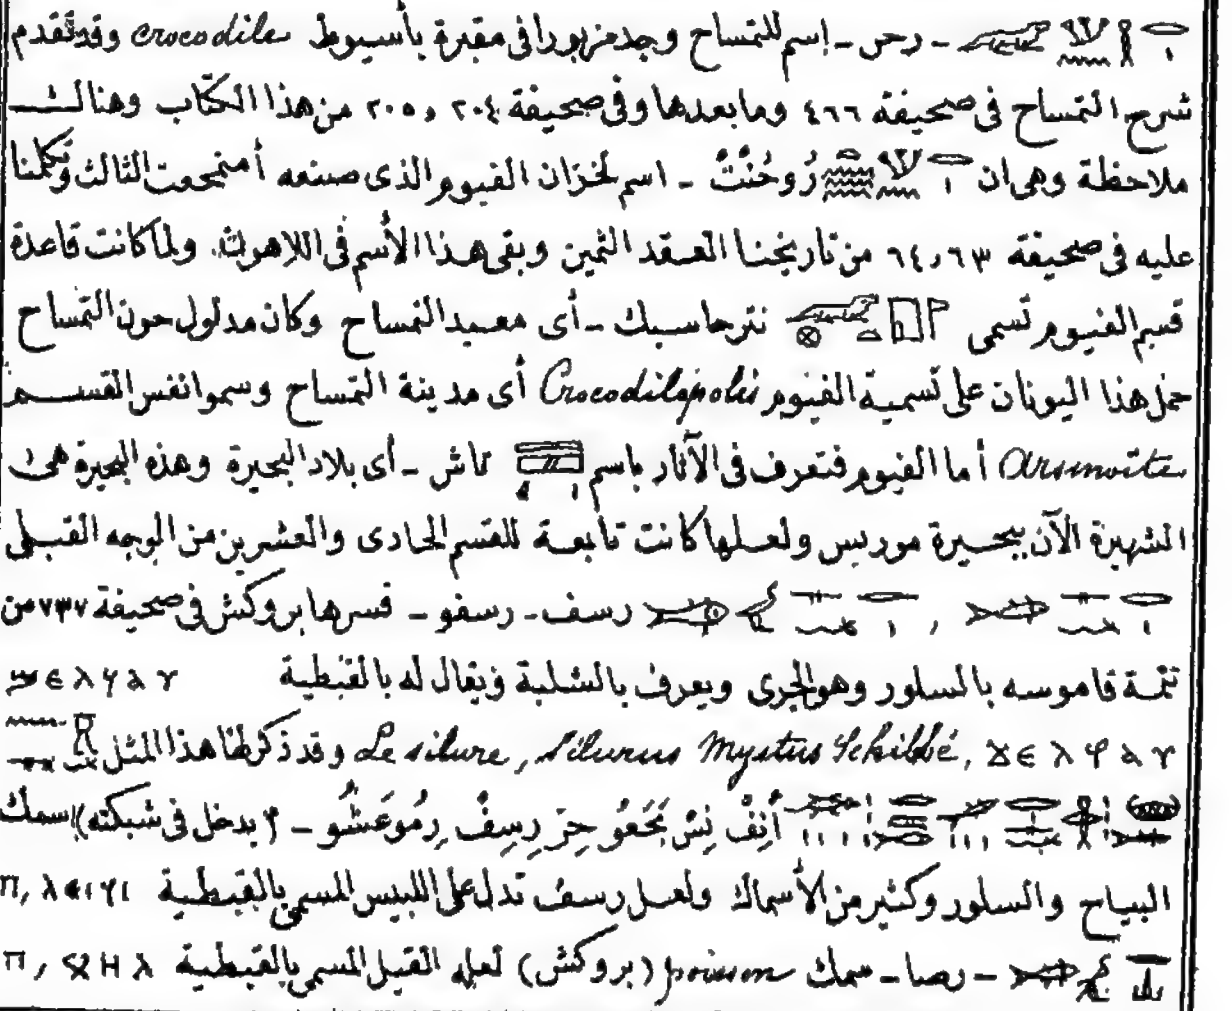 - رحن - إسم للتمساح وجد مزبورا فى مقبرة بأسيوط crocodile وقد تقدم
شرح التمساح فى صحيفة ٤٦٦ وما بعدها وفى صحيفة ٢٠٤ و ٢٠٥ من هذا الكتاب وهنالك
ملاحظة وهى ان رُوحُنْتُ - اسم لخزان الفيوم الذى صنعه أمنمحعت الثالث وتكلمنا
عليه فى صحيفة ٦٣ و ٦٤ من تاريخنا العقد الثمين وبقى هذا الأسم فى اللاهون. ولما كانت قاعدة
قسم الفيوم تسمى نترحاسبك - أى معبد التمساح وكان مدلول حون التمساح
حمل هذا اليونان على تسمية الفيوم Crocodilopolis أى مدينة التمساح وسموا نفس القسم
Arsinoïte أما الفيوم فتعرف فى الآثار باسم تاش - أى بلاد البحيرة وهذه البحيرة هى
الشهيرة الآن ببحيرة موريس ولعلها كانت تابعة للقسم الحادى والعشرين من الوجه القبلى
, رسف - رسفو - فسرها بروكش فى صحيفة ٧٣٧ من
تتمة قاموسه بالسلور وهو الجرى ويعرف بالشلبة ويقال له بالقبطية
Le silure, silurus Mystus Schilbé, وقد ذكرنا هذا المثل
أنِفْ نِسْ بَحَعُو حِرَ رِسِفْ رِمُوعَشُو - (يدخل فى شبكته) سمك
البياح والسلور وكثير من الأسماك ولعل رسف تدل على اللبيس المسمى بالقبطية
- رصا - سمك poisson (بروكش) لعله القيل المسمى بالقبطية